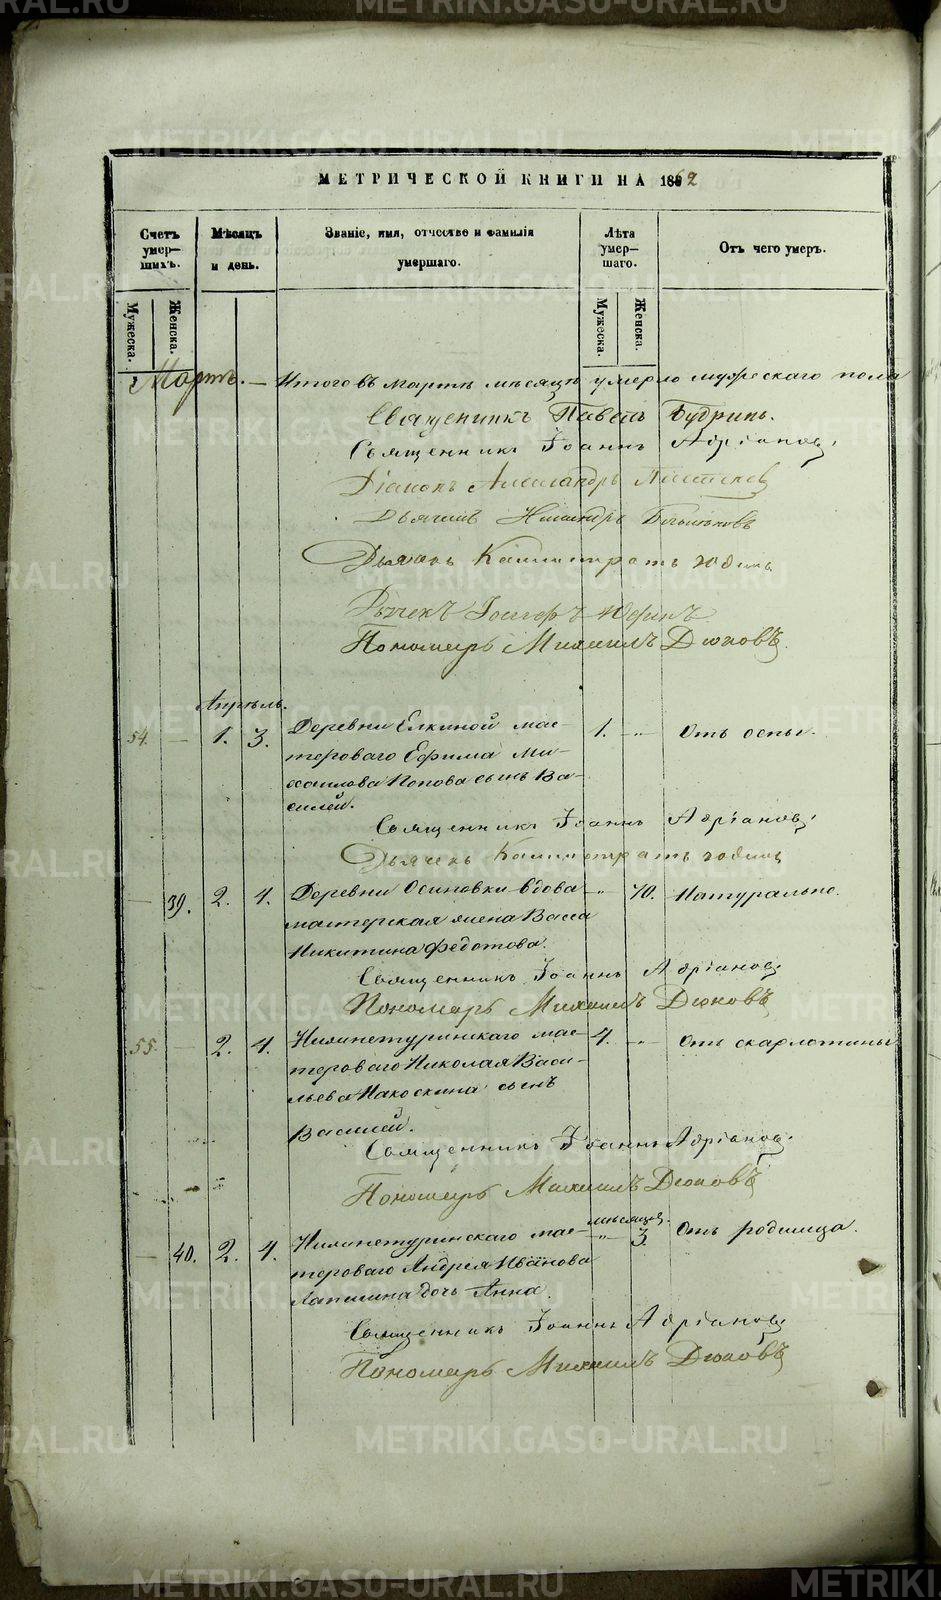 МЕТРИЧЕСКОЙ КНИГИ НА 1862
Счетъ умер-шихъ.
Мѣсяцъ и день.
Званіе, имя, отчество и фамилія умершаго.
Лѣта умер-шаго.
Отъ чего умеръ.
Мужеска.
Женска.
Мужеска.
Женска.
Мартъ. — Итого въ мартѣ мѣсяцѣ умерло мужескаго пола
Священникъ Павелъ Будринъ.
Священникъ Іоаннъ Адріановъ.
Діаконъ Александръ
Дьячекъ
Дьячекъ Калистратъ
Дьячекъ Іосифъ Юферицъ
Пономарь Михаилъ Дюковъ.
Апрѣль.
54. — 1. 3. Деревни Елкиной мас- 1. -"- Отъ оспы.
тероваго Ефима Ми-
хаилова Попова сынъ Ва-
силей.
Священникъ Іоаннъ Адріановъ.
Дьячекъ Калистратъ
— 39. 2. 4. Деревни Осиновки вдова -"- 70. Натурально.
мастерская жена Васса
Никитина Федотова.
Священникъ Іоаннъ Адріановъ
Пономарь Михаилъ Дюковъ
55. — 2. 4. Нижнетуринскаго мас- 4. -"- Отъ скарлотины
тероваго Николая Васи-
льева Накоскина сынъ
Василей.
Священникъ Іоаннъ Адріановъ.
Пономарь Михаилъ Дюковъ
мѣсяцов.
— 40. 2. 4. Нижнетуринскаго мас- -"- 3. Отъ родимца.
тероваго Андрея Иванова
Лапшина дочь Анна.
Священникъ Іоаннъ Адріановъ
Пономарь Михаилъ Дюковъ
METRIKI.GASO-URAL.RU